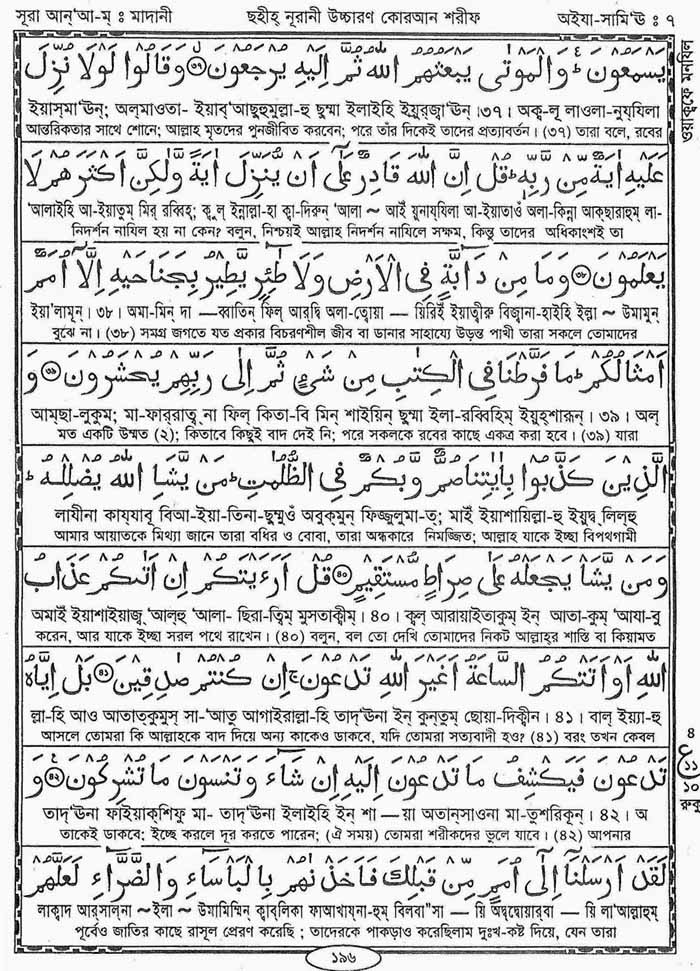 সূরা আন্‌'আ-ম্ ঃ মাদানী
ছহীহ্ নূরানী উচ্চারণ কোরআন শরীফ
অইযা-সামি'ঊ ঃ ৭
يَسْمَعُونَ ؕ وَالْمَوْتٰى يَبْعَثُهُمُ اللّٰهُ ثُمَّ اِلَيْهِ يُرْجَعُونَ ﴿৩৬﴾ وَقَالُوا لَوْلَا نُزِّلَ
ইয়াস্‌মা'ঊন্; অল্‌মাওতা- ইয়াব্'আছুহুমুল্লা-হু ছুম্মা ইলাইহি ইয়ুর্‌জ্বা'ঊন্ ।৩৭। অক্ব-লূ লাওলা-নুয্‌যিলা
আন্তরিকতার সাথে শোনে; আল্লাহ মৃতদের পুনর্জীবিত করবেন; পরে তাঁর দিকেই তাদের প্রত্যাবর্তন। (৩৭) তারা বলে, রবের
عَلَيْهِ اٰيَةٌ مِّنْ رَّبِّهٖ ؕ قُلْ اِنَّ اللّٰهَ قَادِرٌ عَلٰٓى اَنْ يُّنَزِّلَ اٰيَةً وَّلٰكِنَّ اَكْثَرَهُمْ لَا
'আলাইহি আ-ইয়াতুম্ মির্ রব্বিহ্; কুল্ ইন্নাল্লা-হা ক্বা-দিরুন্ 'আলা ~ আইঁ য়ুনায্‌যিলা আ-ইয়াতাওঁ অলা-কিন্না আক্‌ছারাহুম্ লা-
নিদর্শন নাযিল হয় না কেন? বলুন, নিশ্চয়ই আল্লাহ নিদর্শন নাযিলে সক্ষম, কিন্তু তাদের অধিকাংশই তা
يَعْلَمُونَ ﴿৩৭﴾ وَمَا مِنْ دَآبَّةٍ فِى الْاَرْضِ وَلَا طٰٓئِرٍ يَّطِيْرُ بِجَنَاحَيْهِ اِلَّآ اُمَمٌ
ইয়া'লামূন্। ৩৮। অমা-মিন্ দা — ব্বাতিন্ ফিল্ আর্‌দ্বি অলা-ত্বোয়া — য়িরিইঁ ইয়াত্বীরু বিজ্বানা-হাইহি ইল্লা ~ উমামুন্
বুঝে না। (৩৮) সমগ্র জগতে যত প্রকার বিচরণশীল জীব বা ডানার সাহায্যে উড়ন্ত পাখী তারা সকলে তোমাদের
اَمْثَالُكُمْ ؕ مَا فَرَّطْنَا فِى الْكِتٰبِ مِنْ شَىْءٍ ثُمَّ اِلٰى رَبِّهِمْ يُحْشَرُونَ ﴿৩৮﴾ وَ
আম্‌ছা-লুকুম্; মা-ফার্‌রাত্ব্ না ফিল্ কিতা-বি মিন্ শাইয়িন্ ছুম্মা ইলা-রব্বিহিম্ ইয়ুহ্‌শারূন্। ৩৯। অল্
মত একটি উম্মত (২); কিতাবে কিছুই বাদ দেই নি; পরে সকলকে রবের কাছে একত্র করা হবে। (৩৯) যারা
الَّذِيْنَ كَذَّبُوا بِاٰيٰتِنَا صُمٌّ وَّبُكْمٌ فِى الظُّلُمٰتِ ؕ مَنْ يَّشَاِ اللّٰهُ يُضْلِلْهُ ؕ
লাযীনা কায্‌যাবূ বিআ-ইয়া-তিনা-ছুম্মুওঁ অবুক্‌মুন্ ফিজ্জুলুমা-ত্; মাইঁ ইয়াশায়িল্লা-হু ইয়ুদ্ব্‌লিল্‌হু
আমার আয়াতকে মিথ্যা জানে তারা বধির ও বোবা, তারা অন্ধকারে নিমজ্জিত; আল্লাহ যাকে ইচ্ছা বিপথগামী
وَمَنْ يَّشَاْ يَجْعَلْهُ عَلٰى صِرَاطٍ مُّسْتَقِيْمٍ ﴿৩৯﴾ قُلْ اَرَءَيْتَكُمْ اِنْ اَتٰىكُمْ عَذَابُ
অমাইঁ ইয়াশাইয়াজ্ব্'আল্‌হু 'আলা- ছিরা-ত্বিম্ মুসতাক্বীম্। ৪০। কুল্ আরায়াইতাকুম্ ইন্ আতা-কুম্ 'আযা-বু
করেন, আর যাকে ইচ্ছা সরল পথে রাখেন। (৪০) বলুন, বল তো দেখি তোমাদের নিকট আল্লাহ্‌র শাস্তি বা কিয়ামত
اللّٰهِ اَوْ اَتَتْكُمُ السَّاعَةُ اَغَيْرَ اللّٰهِ تَدْعُونَ ۚ اِنْ كُنْتُمْ صٰدِقِيْنَ ﴿৪০﴾ بَلْ اِيَّاهُ
ল্লা-হি আও আতাত্‌কুমুস্ সা-'আতু আগাইরাল্লা-হি তাদ্'ঊনা ইন্ কুন্‌তুম্ ছোয়া-দিক্বীন। ৪১। বাল্ ইয়্যা-হু
আসলে তোমরা কি আল্লাহকে বাদ দিয়ে অন্য কাকেও ডাকবে, যদি তোমরা সত্যবাদী হও? (৪১) বরং তখন কেবল
تَدْعُونَ فَيَكْشِفُ مَا تَدْعُونَ اِلَيْهِ اِنْ شَآءَ وَتَنْسَوْنَ مَا تُشْرِكُونَ ﴿৪১﴾ وَ
তাদ্'ঊনা ফাইয়াক্‌শিফু মা- তাদ্'ঊনা ইলাইহি ইন্ শা — য়া অতান্‌সাওনা মা-তুশরিকূন্। ৪২। অ
তাকেই ডাকবে; ইচ্ছে করলে দূর করতে পারেন; (ঐ সময়) তোমরা শরীকদের ভুলে যাবে। (৪২) আপনার
لَقَدْ اَرْسَلْنَآ اِلٰٓى اُمَمٍ مِّنْ قَبْلِكَ فَاَخَذْنٰهُمْ بِالْبَاْسَآءِ وَالضَّرَّآءِ لَعَلَّهُمْ
লাক্বাদ আর্‌সাল্‌না ~ইলা ~ উমামিম্মিন্ ক্বাব্‌লিকা ফাআখায্‌না-হুম্ বিল্‌বা"সা — য়ি অদ্ব্‌দ্বোয়ার্‌বা — য়ি লা'আল্লাহুম্
পূর্বেও জাতির কাছে রাসূল প্রেরণ করেছি ; তাদেরকে পাকড়াও করেছিলাম দুঃখ-কষ্ট দিয়ে, যেন তারা
১৯৬
ওয়াক্বফে মনযিল
৪
ع
১১
১০
রুকু